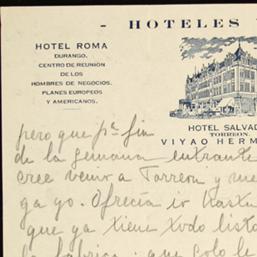 - HOTELES
HOTEL ROMA
DURANGO.
CENTRO DE REUNIÓN
DE LOS
HOMBRES DE NEGOCIOS.
PLANES EUROPEOS
Y AMERICANOS.
HOTEL SALVAD
TORREON.
VIYAO HERM
pero que pª fin
de la semana entrante
cree venir a Torreón y me
ga go. Ofrecía ir hasta
que ya tiene todo listo
la fábrica. que solo le